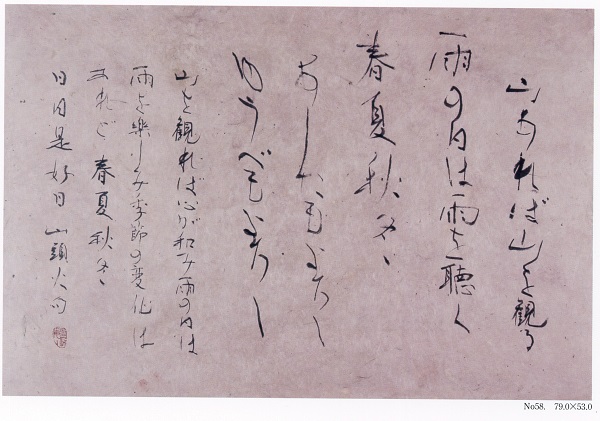 山あれば山を観る
雨の日は雨を聴く
春夏秋冬
あしたもよろし
ゆうべもよろし
山を観れば心が和み雨の日は
雨を楽しみ季節の変化は
あれど 春夏秋冬
日日是好日 山頭火句
No58. 79.0×53.0